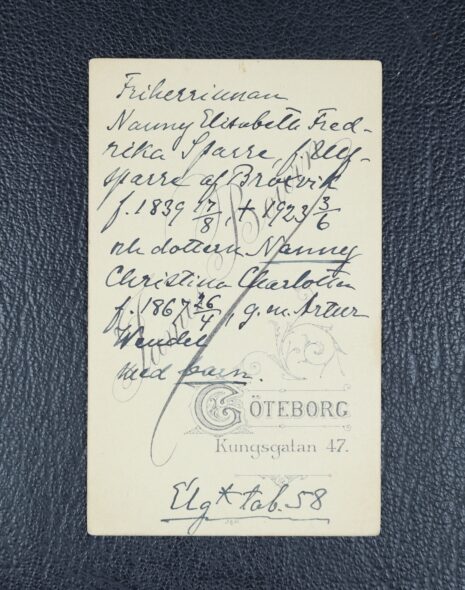 Friherrinnan
Nanny Elisabeth Fred-
rika Sparre, f. Ulf-
sparre af Broxvik
f. 1839 17/8, + 1923 3/6
och dottern Nanny
Christina Charlotta
f. 1867 26/4, g.m. Artur
Wendel
med barn.
GÖTEBORG
Kungsgatan 47.
Elgᵗ tab. 58